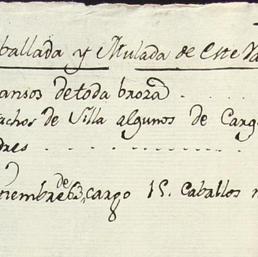 ballada y Mulada de este Ra
ansos de toda broza
achos de Silla algunos de Carg
dres
tiembre de 63, cargo 15. Caballos m